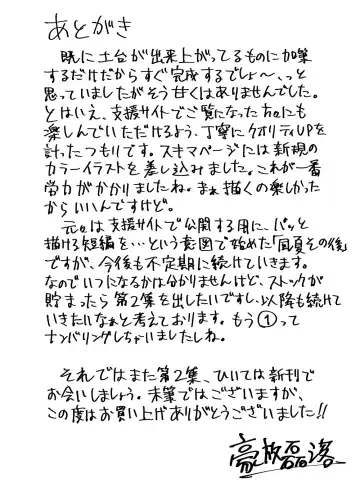 あとがき
既に土台が出来上がってるものに加筆
するだけだからすぐ完成するでしょ〜、っと
思っていましたがそう甘くはありませんでした。
とはいえ、支援サイトでご覧になった方々にも
楽しんでいただけるよう、丁寧にクオリティUPを
計ったつもりです。スキマページには新規の
カラーイラストを差し込みました。これが一番
労力がかかりましたね。まぁ描くの楽しかった
からいいんですけど。
元々は支援サイトで公開する用に、パッと
描ける短編を…という意図で始めた「凰夏その後」
ですが、今後も不定期に続けていきます。
なのでいつになるかは分かりませんけど、ストックが
貯まったら第2集を出したいですし、以降も続けて
いきたいなぁと考えております。もう①って
ナンバリングしちゃいましたしね。
それではまた第2集、ひいては新刊で
お会いしましょう。末筆ではございますが、
この度はお買い上げありがとうございました!!
高板磊落